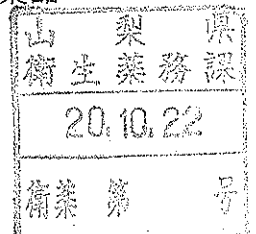 山梨県
衛生薬務課
20.10.22
衛薬第 号